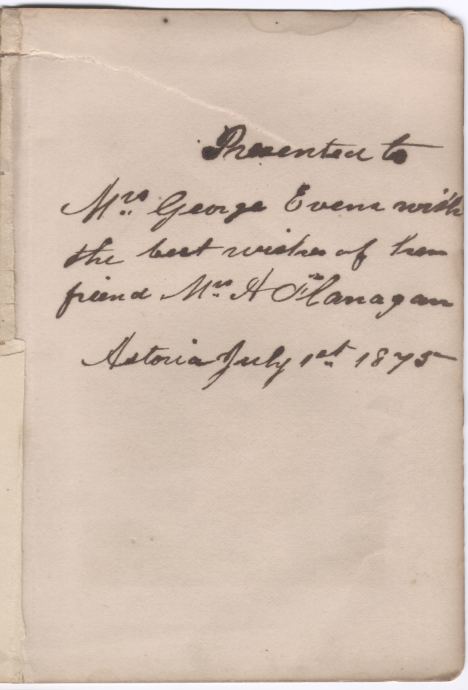 Presented to
Mrs. George Evens with
the best wishes of her
friend Mrs H Flanagan
Astoria July 1st. 1875